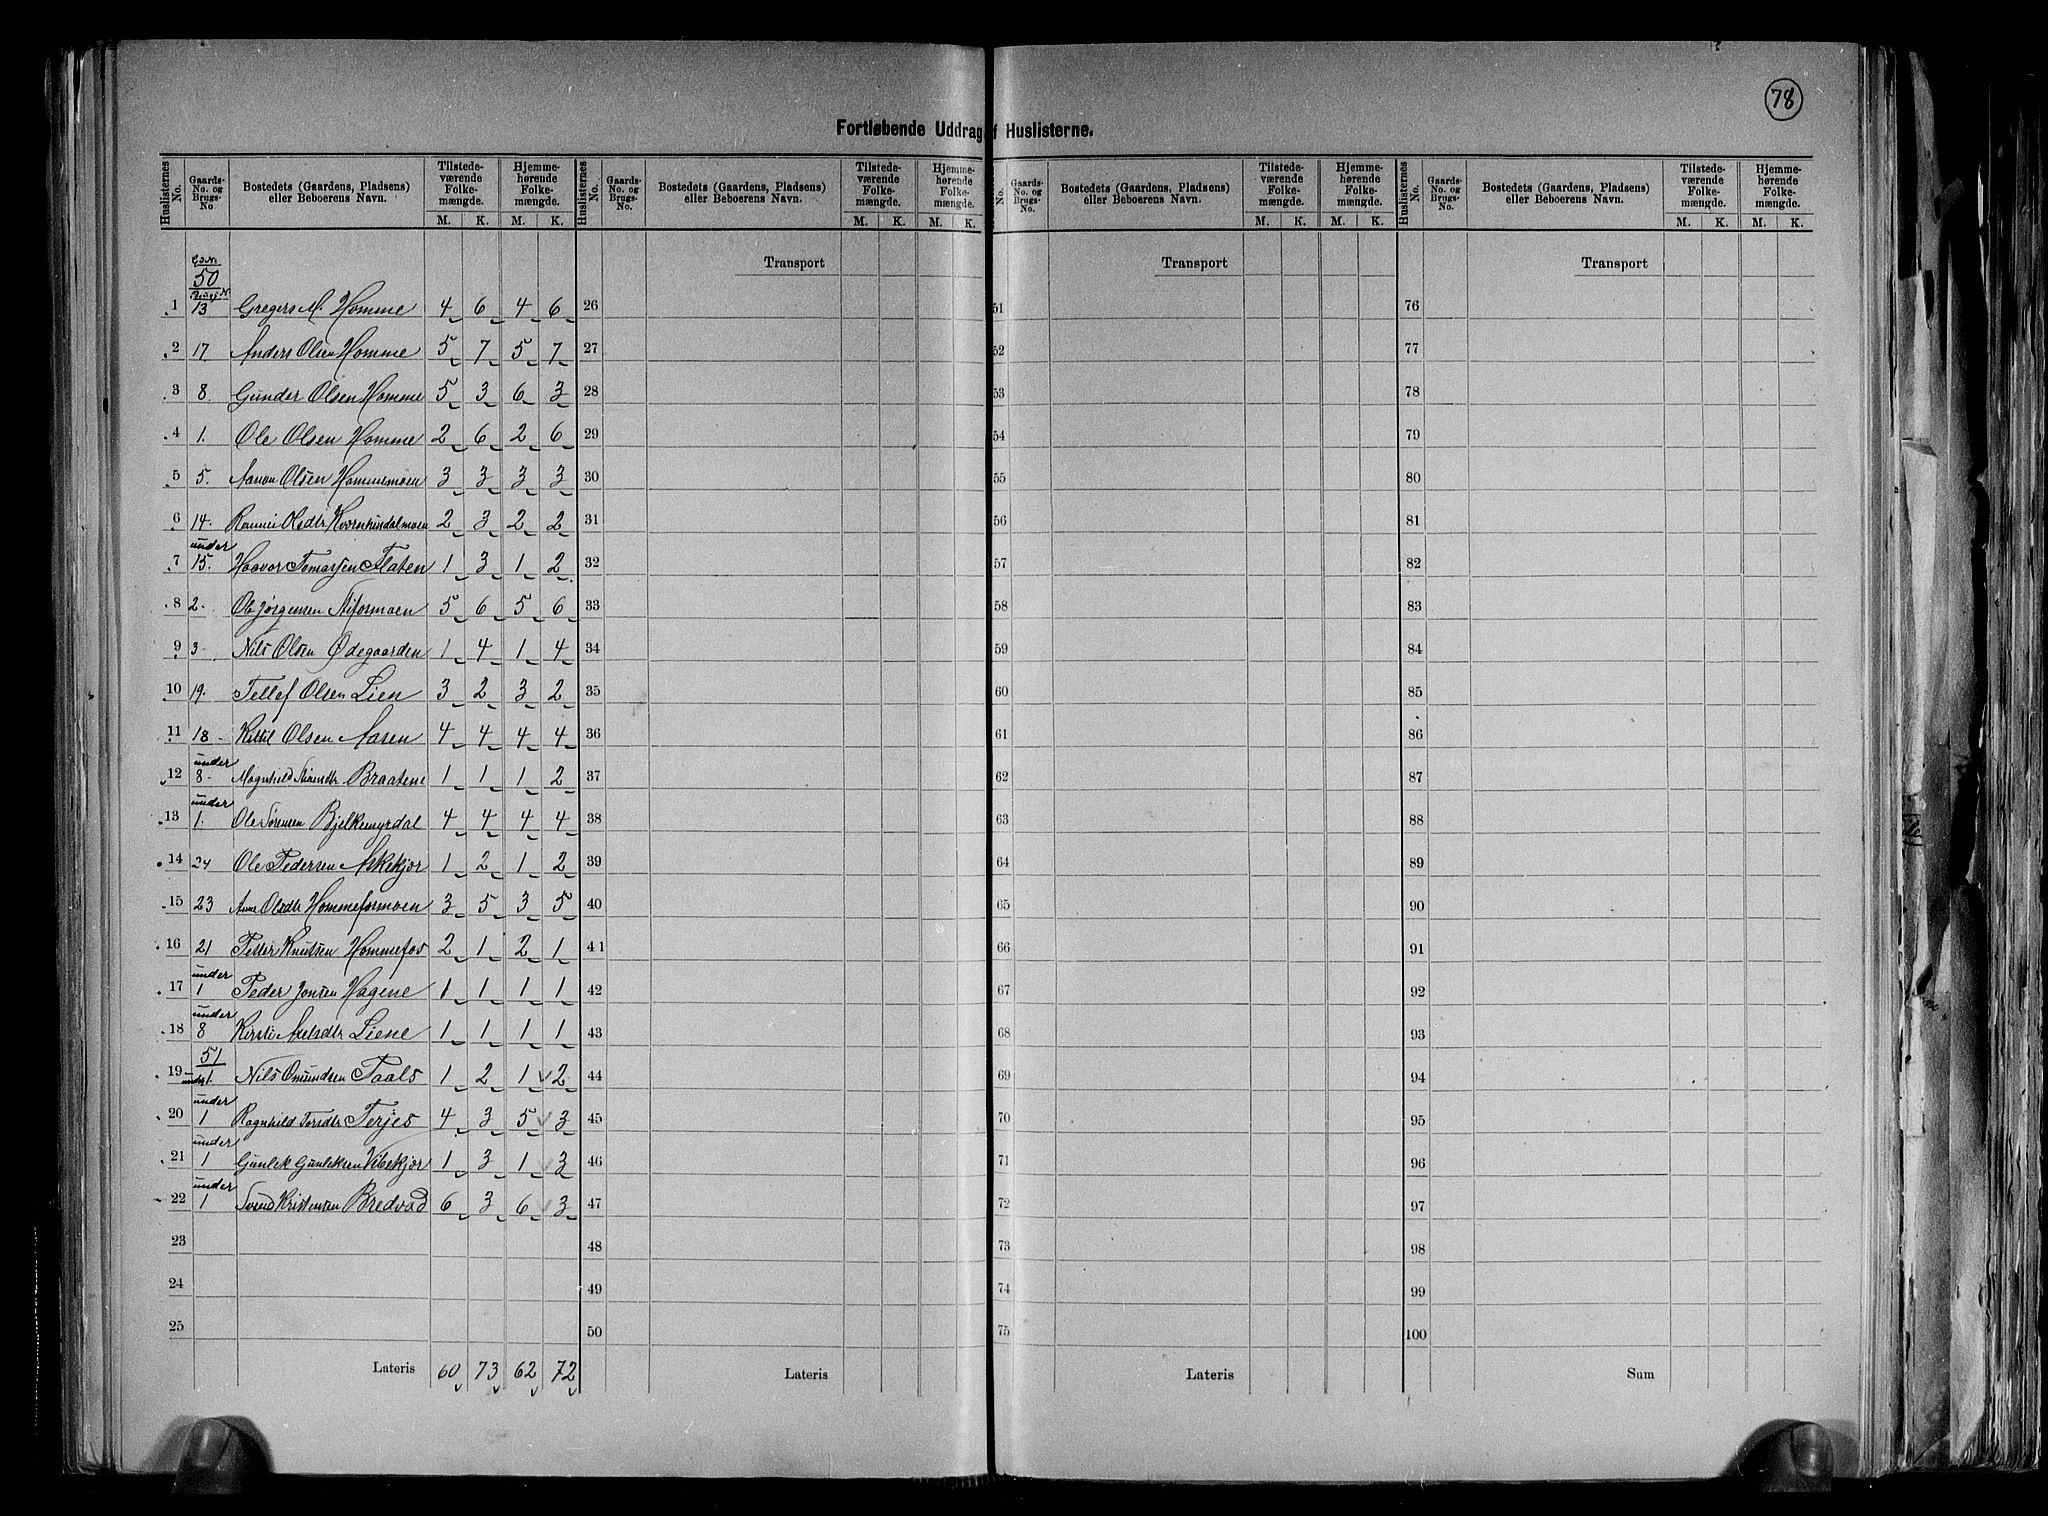 78
Fortløbende Uddrag af Huslisterne.
Huslisternes No. Gaards-No. og Brugs-No Bostedets (Gaardens, Pladsens) eller Beboerens Navn. Tilstedeværende Folkemængde. M. K. Hjemmehørende Folkemængde. M. K.
Huslisternes No. Gaards-No. og Brugs-No. Bostedets (Gaardens, Pladsens) eller Beboerens Navn. Tilstedeværende Folkemængde. M. K. Hjemmehørende Folkemængde. M. K.
No. Gaards-No. og Brugs-No. Bostedets (Gaardens, Pladsens) eller Beboerens Navn. Tilstedeværende Folkemængde. M. K. Hjemmehørende Folkemængde. M. K.
Huslisternes No. Gaards-No. og Brugs-No. Bostedets (Gaardens, Pladsens) eller Beboerens Navn. Tilstedeværende Folkemængde. M. K. Hjemmehørende Folkemængde. M. K.
G.Nr.
50
Brugs N.
1 13 Gregers M. Homme 4 6 4 6
2 17. Anders Olsen Homme 5 7 5 7
3 8. Gunder Olsen Homme 5 3 6 3
4 1. Ole Olsen Homme 2 6 2 6
5 5. Aanon Olsen Hommemoen 3 3 3 3
6 14. Olsdtr 2 3 2 2
under
7 15. Haavor Flaten 1 3 1 2
8 2. Ole Jørgensen 5 6 5 6
9 3 Nils Olsen Ødegaarden 1 4 1 4
10 19. Tellef Olsen Lien 3 2 3 2
11 18 Kittil Olsen Aasen 4 4 4 4
under
12 8 Magnhild Braatene 1 1 1 2
under
13 1. Ole Sørensen Bjelkemyrdal 4 4 4 4
14 24 Ole Pedersen Askekjør 1 2 1 2
15 23 Anne Olsdtr Hommeformoen 3 5 3 5
16 21 Petter Knutsen Hommefos 2 1 2 1
under
17 1 Peder Jonsen Hagene 1 1 1 1
under
18 8 Kirsti Axelsdtr Liene 1 1 1 1
51
19 under 1. Nils Omundsen Taals 1 2 1 2
under
20 1 Ragnhild Terjes 4 3 5 3
under
21 1 Gunlek Gunleksen Vibekjør 1 3 1 3
under
22 1 Svend Kristensen Bredvad 6 3 6 3
23
24
25
Lateris 60 73 62 72
Transport
26
27
28
29
30
31
32
33
34
35
36
37
38
39
40
41
42
43
44
45
46
47
48
49
50
Lateris
Transport
51
52
53
54
55
56
57
58
59
60
61
62
63
64
65
66
67
68
69
70
71
72
73
74
75
Lateris
Transport
76
77
78
79
80
81
82
83
84
85
86
87
88
89
90
91
92
93
94
95
96
97
98
99
100
Sum